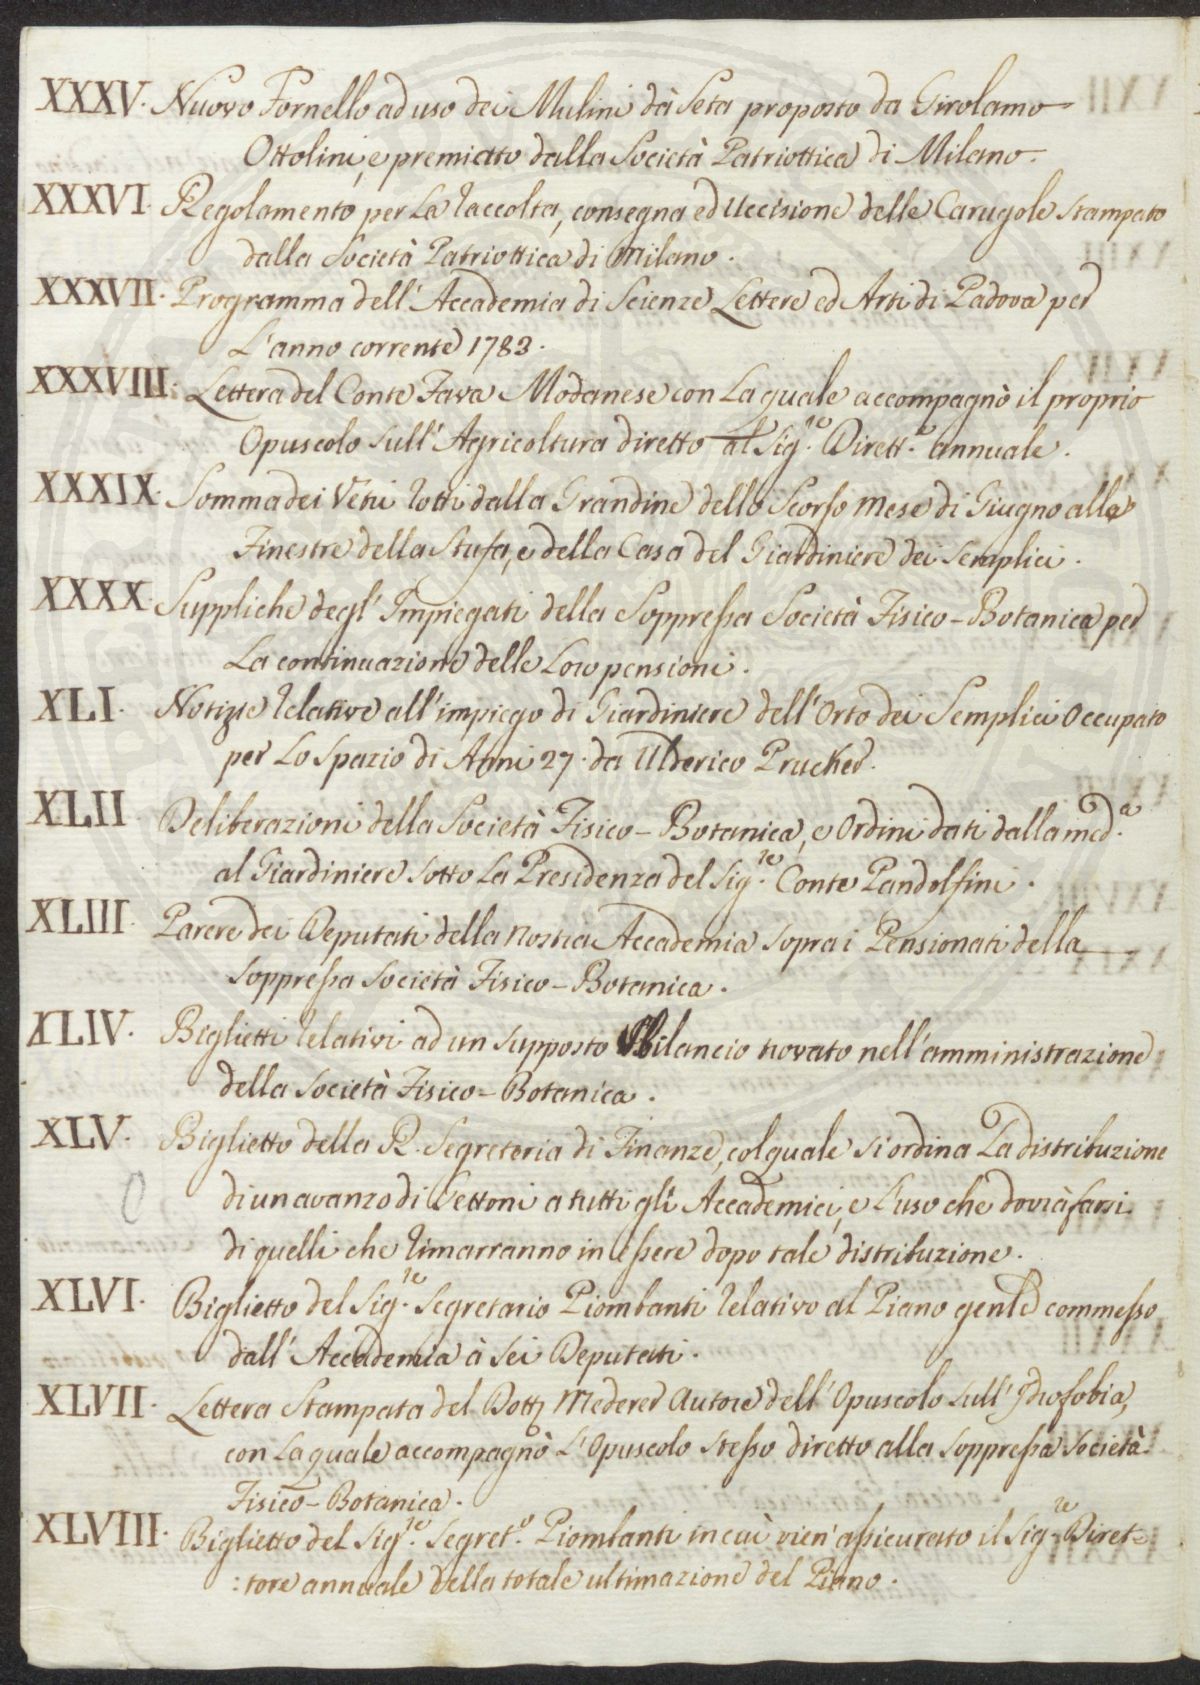 XXXV. Nuovo Fornello ad uso dei Mulini dà Seta proposto da Girolamo
Ottolini, e premiato dalla Società Patriottica di Milano.
XXXVI. Regolamento per La raccolta, consegna ed Uccisione delle Carugole stampato
dalla Società Patriottica di Milano.
XXXVII. Programma dell'Accademia di Scienze Lettere ed Arti di Padova per
L'anno corrente 1783.
XXXVIII. Lettera del Conte Fava Modanese con La quale accompagnò il proprio
Opuscolo sull'Agricoltura diretto al Sig.re Dirett.e annuale.
XXXIX. Somma dei Vetri rotti dalla Grandine dello Scorso Mese di Giugno alle
Finestre della Stufa, e della Casa del Giardiniere dei Semplici.
XXXX. Suppliche degl'Impiegati della Soppressa Società Fisico-Botanica per
La continuazione delle Loro pensioni.
XLI. Notizie relative all'impiego di Giardiniere dell'Orto dei Semplici Occupato
per Lo spazio di Anni 27. da Ulderico Prucker.
XLII Deliberazioni della Società Fisico-Botanica, e Ordini dati dalla med.a
al Giardiniere sotto La Presidenza del Sig.re Conte Pandolfini.
XLIII. Parere dei Deputati della nostra Accademia sopra i Pensionati della
soppressa Società Fisico-Botanica.
XLIV. Biglietti relativi ad un supposto Sbilancio trovato nell'amministrazione
della Società Fisico-Botanica.
XLV. Biglietto della R. Segreteria di Finanze, col quale si ordina La distribuzione
di un avanzo di Gettoni a tutti gli Accademici, e L'uso che dovrà farsi
di quelli che rimarranno in essere dopo tale distribuzione.
XLVI. Biglietto del Sig.re Segretario Piombanti relativo al Piano genle commesso
dall'Accademia à Sei Deputati.
XLVII. Lettera Stampata del Dott. Mederer Autore dell'Opuscolo sull'Idrofobia,
con La quale accompagnò L'Opuscolo stesso diretto alla soppressa Società
Fisico-Botanica.
XLVIII. Biglietto del Sig.re Segret.o Piombanti in cui vien'assicurato il Sig.re Diret=
:tore annuale della totale ultimazione del Piano.